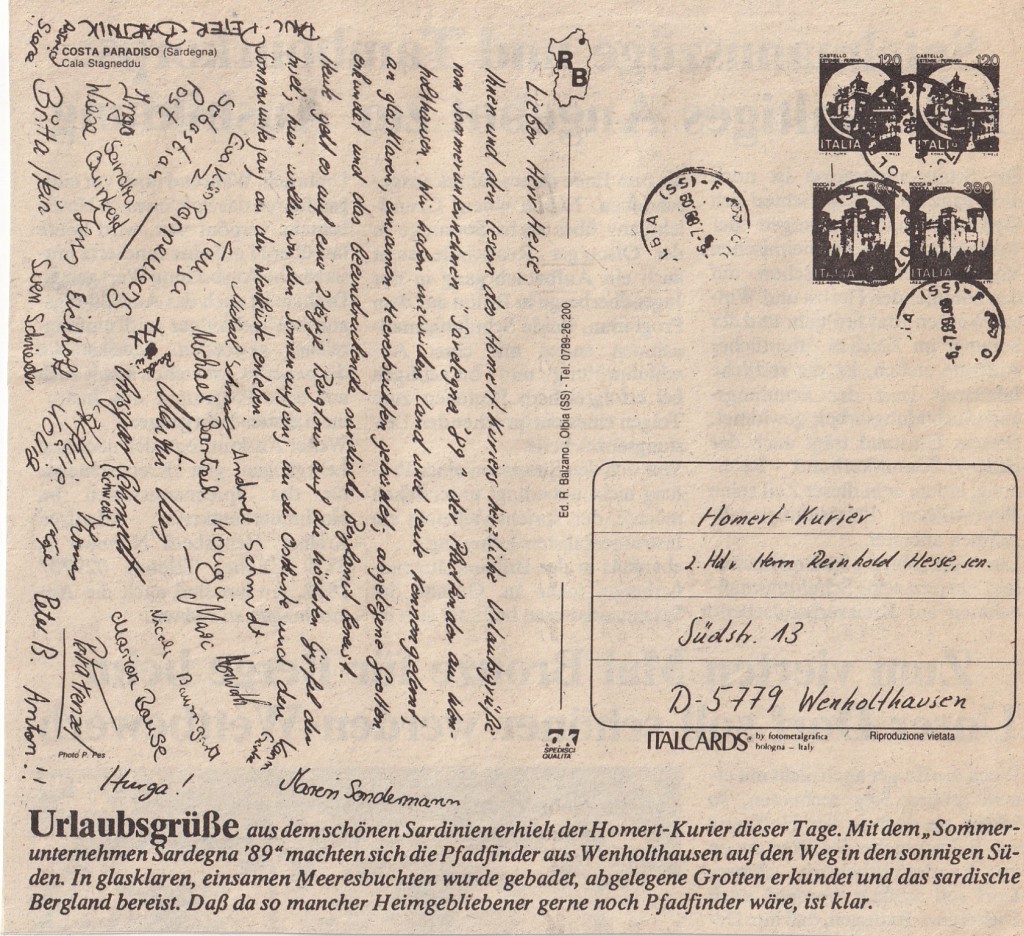 COSTA PARADISO (Sardegna)
Cala Stagneddu
Lieber Herr Hesse,
Ihnen und den Lesern des Homert-Kuriers herzliche Urlaubsgrüße
vom Sommerunternehmen "Sardegna 89" der Pfadfinder aus Wen-
holthausen. Wir haben inzwischen Land und Leute kennengelernt,
an glasklaren, einsamen Meeresbuchten gebadet, abgelegene Grotten
erkundet und das beeindruckende sardische Bergland bereist.
Heute geht es auf eine 2 tägige Bergtour auf die höchsten Gipfel der
Insel; hier wollen wir den Sonnenaufgang an der Ostküste und den
Sonnenuntergang an der Westküste erleben.
Michael Schmies
Andree Schmidt
Sebastian
Tanja
Michael Bartnik
Marc
Nicole Baumgarten
Marion Bause
Jens Eickhoff
Sven Schneider
Thomas
(Schwede)
Peter B.
Anton!!
Petra Frenzel
Hurga!
Maren Sondermann
Photo P. Pes
RB
Ed. R. Balzano - Olbia (SS) - Tel. 0789-26.200
SPEDISCI
QUALITÀ
CASTELLO
ESTENSE - FERRARA
120
ITALIA
CASTELLO
ESTENSE - FERRARA
120
ITALIA
ROCCA DI
ITALIA
ROCCA DI
380
ITALIA
(SS)-F
-6.-7.89
Homert-Kurier
z. Hd. v. Herrn Reinhold Hesse, sen.
Südstr. 13
D-5779 Wenholthausen
ITALCARDS® by fotometalgrafica
bologna – Italy
Riproduzione vietata
Urlaubsgrüße aus dem schönen Sardinien erhielt der Homert-Kurier dieser Tage. Mit dem „Sommer-
unternehmen Sardegna '89“ machten sich die Pfadfinder aus Wenholthausen auf den Weg in den sonnigen Sü-
den. In glasklaren, einsamen Meeresbuchten wurde gebadet, abgelegene Grotten erkundet und das sardische
Bergland bereist. Daß da so mancher Heimgebliebener gerne noch Pfadfinder wäre, ist klar.